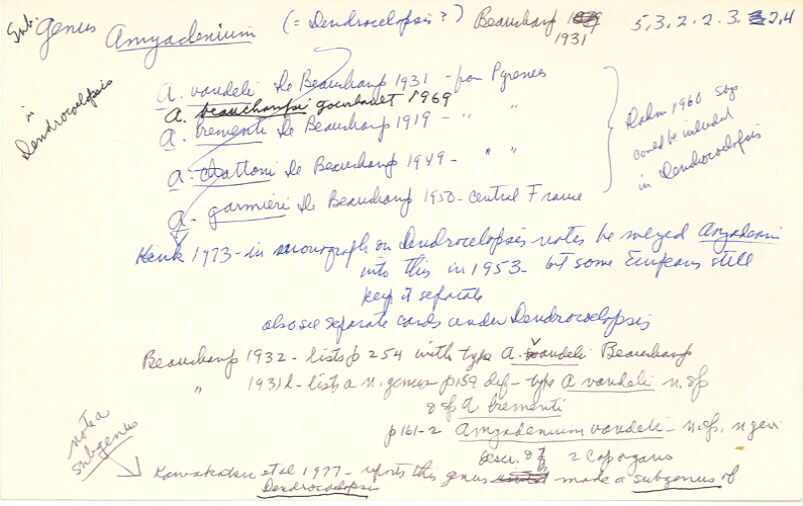 Sub genus Amyadenium (= Dendrocelopsis?) Beauchamp 1931 5,3,2.2.3.2,4
in Dendrocoelopsis
A. vandeli de Beauchamp 1931 - from Pyrenees
A. beauchampi gourbault 1969
A. brementi de Beauchamp 1919 - " "
A. chattoni de Beauchamp 1949 - " "
A. garmieri de Beauchamp 1950 - central France
Rahm 1960 says
could be included
in Dendrocoelopsis
Kenk 1973 - in monograph on Dendrocelopsis notes he merged Amyadenium
into this in 1953 - but some Europeans still
keep it separate
also see separate cards under Dendrocoelopsis
Beauchamp 1932 - lists p 254 with type A. vandeli Beauchamp
" 1931b - lists a n. genus - p159 def - type A vandeli n. sp
& sp A brementi
p161-2 Amyadenium vandeli - n. sp. n gen
descr. & 2 cop organs
note a
subgenus
Kawakatsu et al 1977 - reports this genus made a subgenus of
Dendrocoelopsis